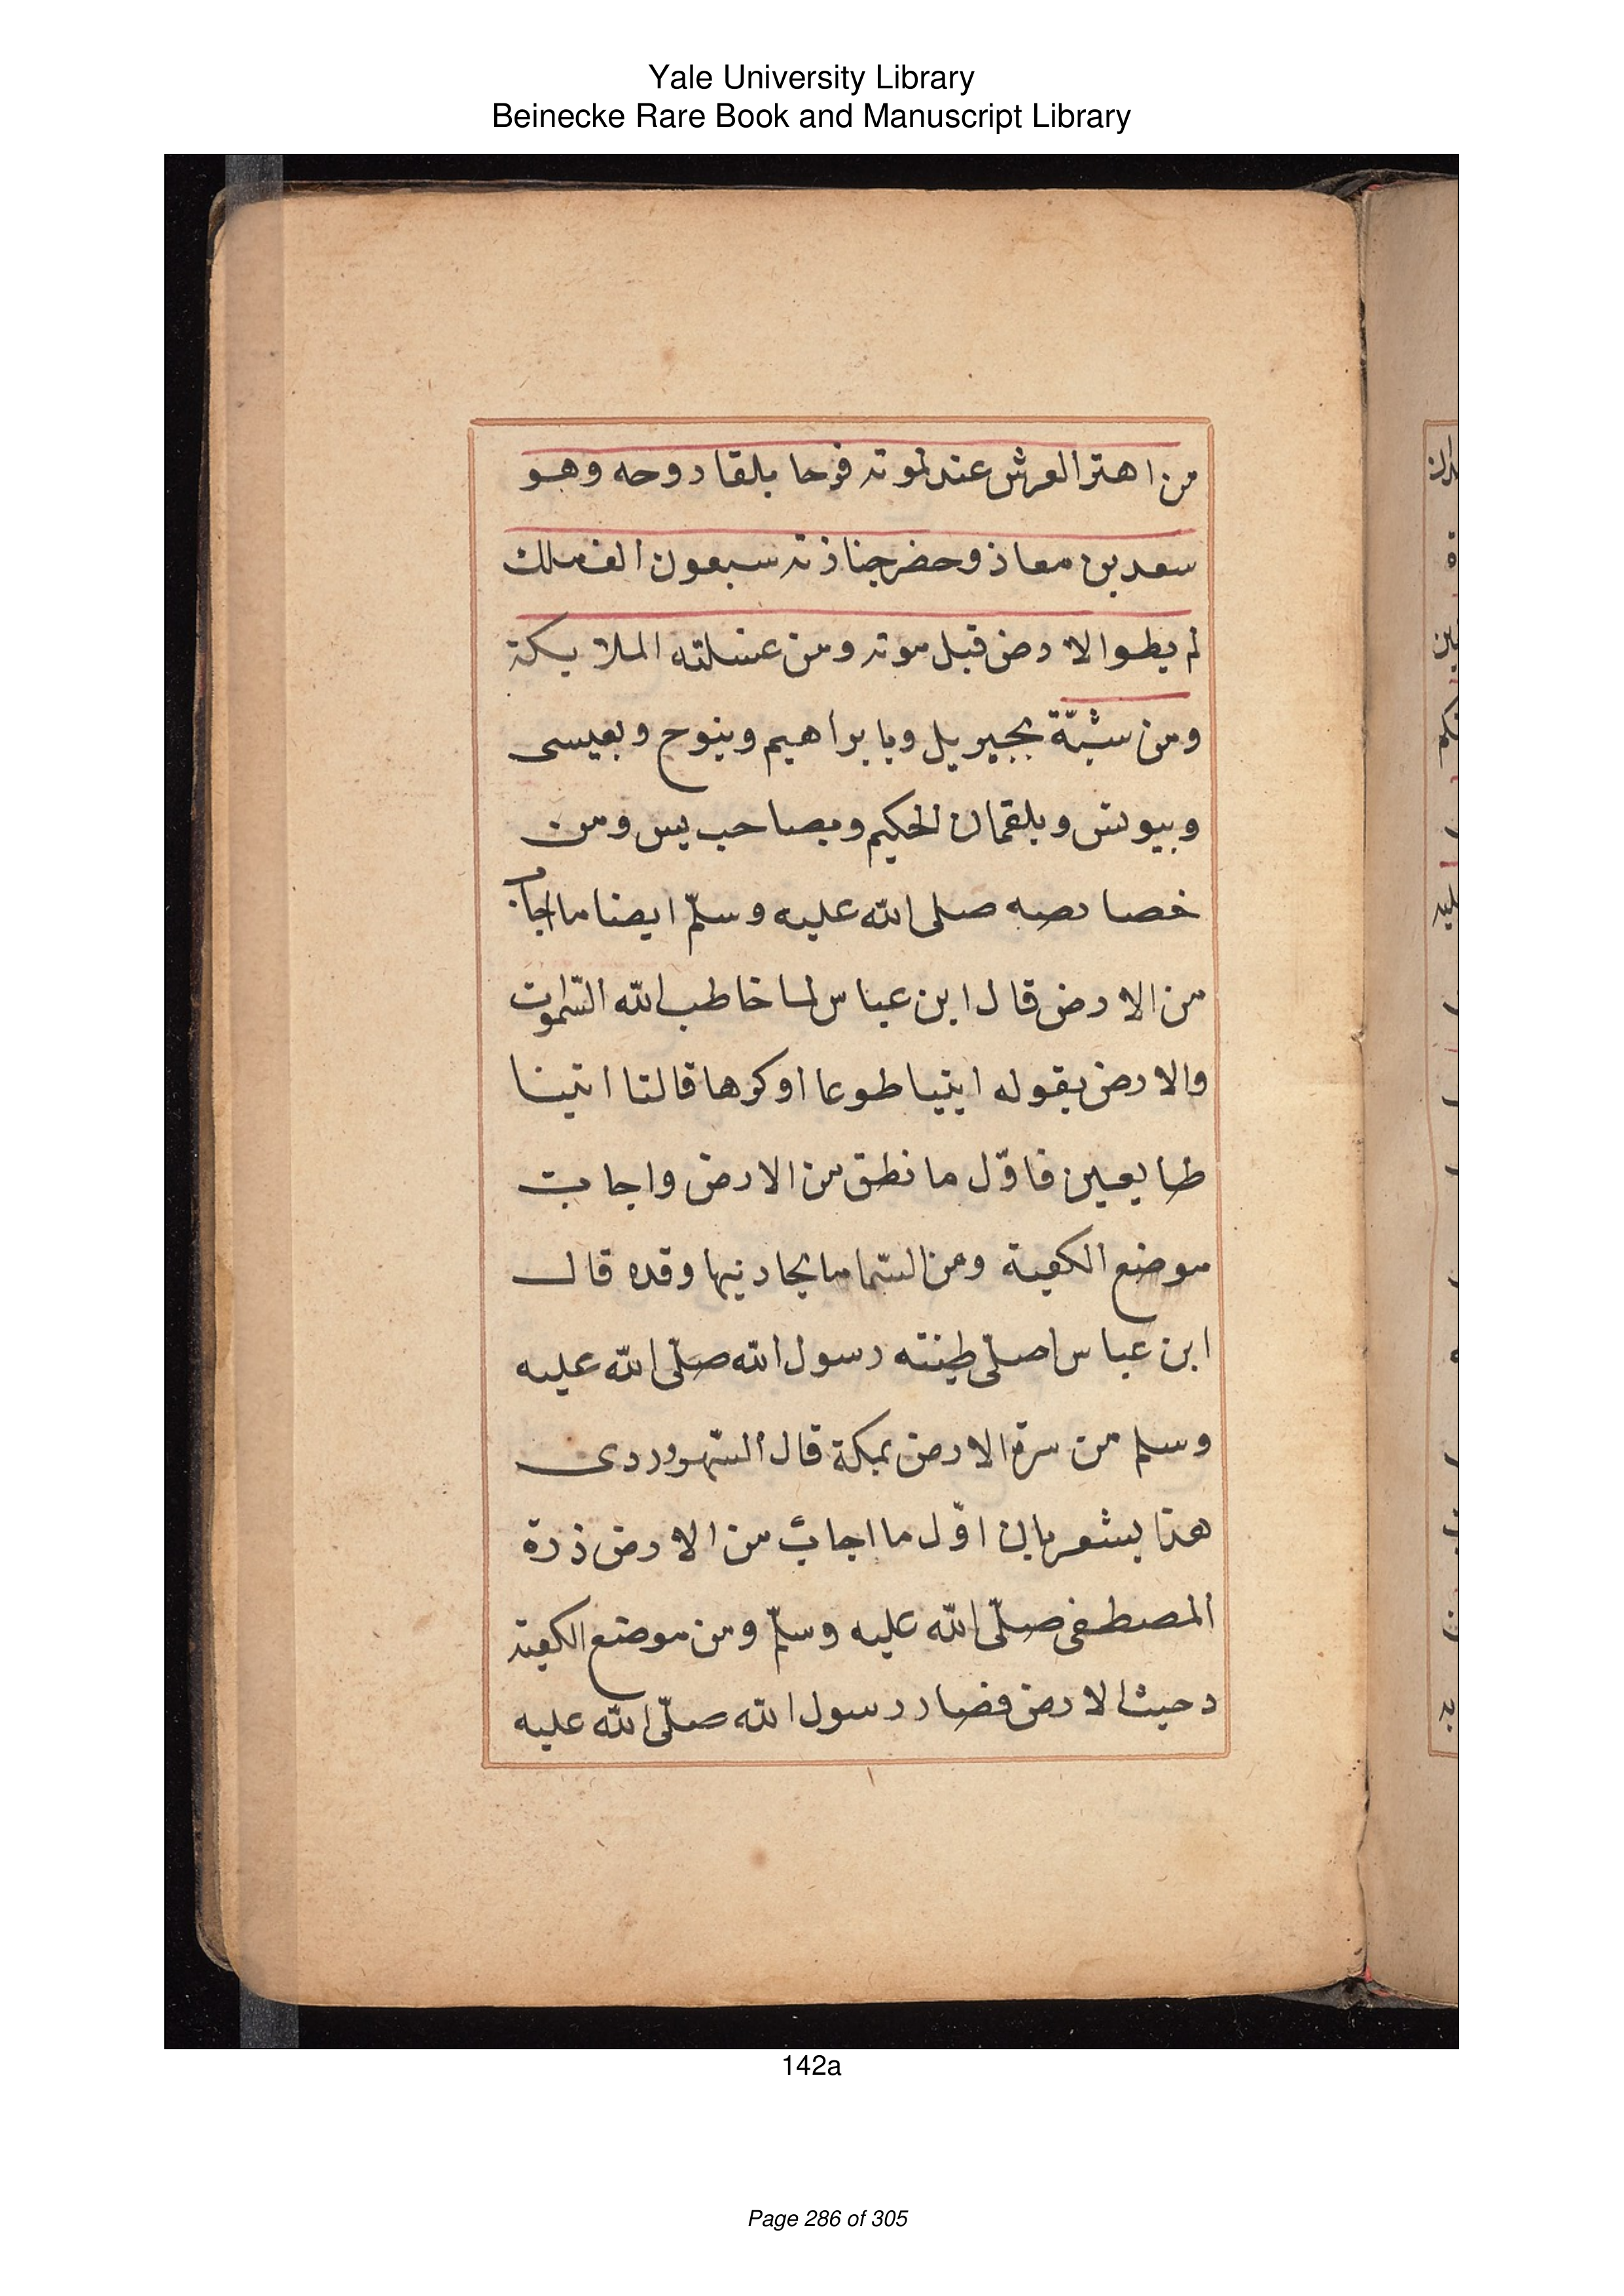 Yale University Library
Beinecke Rare Book and Manuscript Library
من اهتز العرش عند لموته فرحا بلقا روحه وهو
سعد بن معاذ وحضر جنازته سبعون الف ملك
لم يطوا الارض قبل موته ومن غسلته الملايكة
ومن شبّه بجبريل وبابراهيم وبنوح وبعيسى
وبيوسف وبلقمان الحكيم وبصاحب يس ومن
خصايصه صلى الله عليه وسلّم ايضا ما اجاب
من الارض قال ابن عباس لما خاطب الله السّموات
والارض بقوله ايتيا طوعا او كرها قالتا اتينا
طايعين فاوّل ما نطق من الارض واجابت
موضع الكعبة ومن السّما ما يحاذيها وقد قال
ابن عباس اصلى طينته رسول الله صلّى الله عليه
وسلم من سرة الارض بمكة قال السّهروردى
هذا يشعر بان اوّل ما اجاب من الارض ذرة
المصطفى صلّى الله عليه وسلّم ومن موضع الكعبة
دحيت الارض فصار رسول الله صلّى الله عليه
142a
Page 286 of 305